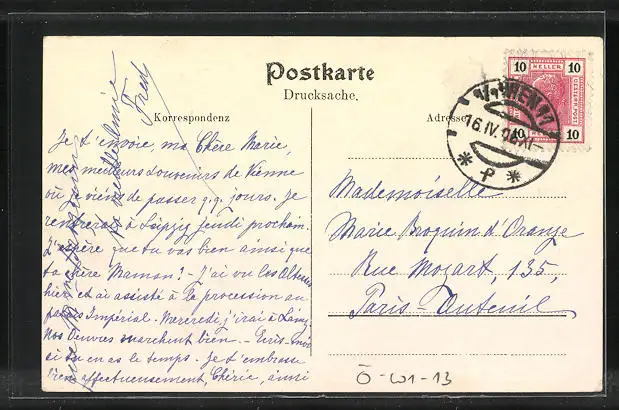 Postkarte
Drucksache.
Korrespondenz
Adresse
10 HELLER 10
10 10
1/1 WIEN 1
16.IV.
Je t'envoie, ma Chère Marie,
mes meilleurs souvenirs de Vienne
où je viens de passer q.q. jours. Je
rentrerai à Leipzig jeudi prochain.
J'espère que tu vas bien ainsi que
ta chère Maman? - J'ai vu les
hier et ai assisté à la procession au
palais Impérial. Mercredi, j'irai à
Nos Oeuvres marchent bien. - Ecris-moi
si tu en as le temps. Je t'embrasse
bien affectueusement, Chérie, ainsi
que
Fred
Mademoiselle
Marie Broquin d'Orange
Rue Mozart, 135,
Paris-Auteuil
Ö-W1-13